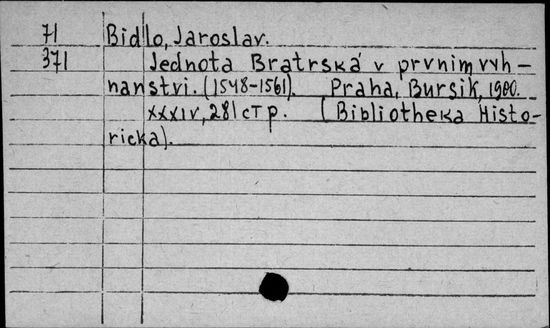 71 Bidlo, Jaroslav.
371 Jednota Bratrská v prvnim vyh-
nanstvi. (1548-1561). Praha, Bursik, 1900.
XXXIV, 281 стр. (Bibliotheka Histo-
ricka).